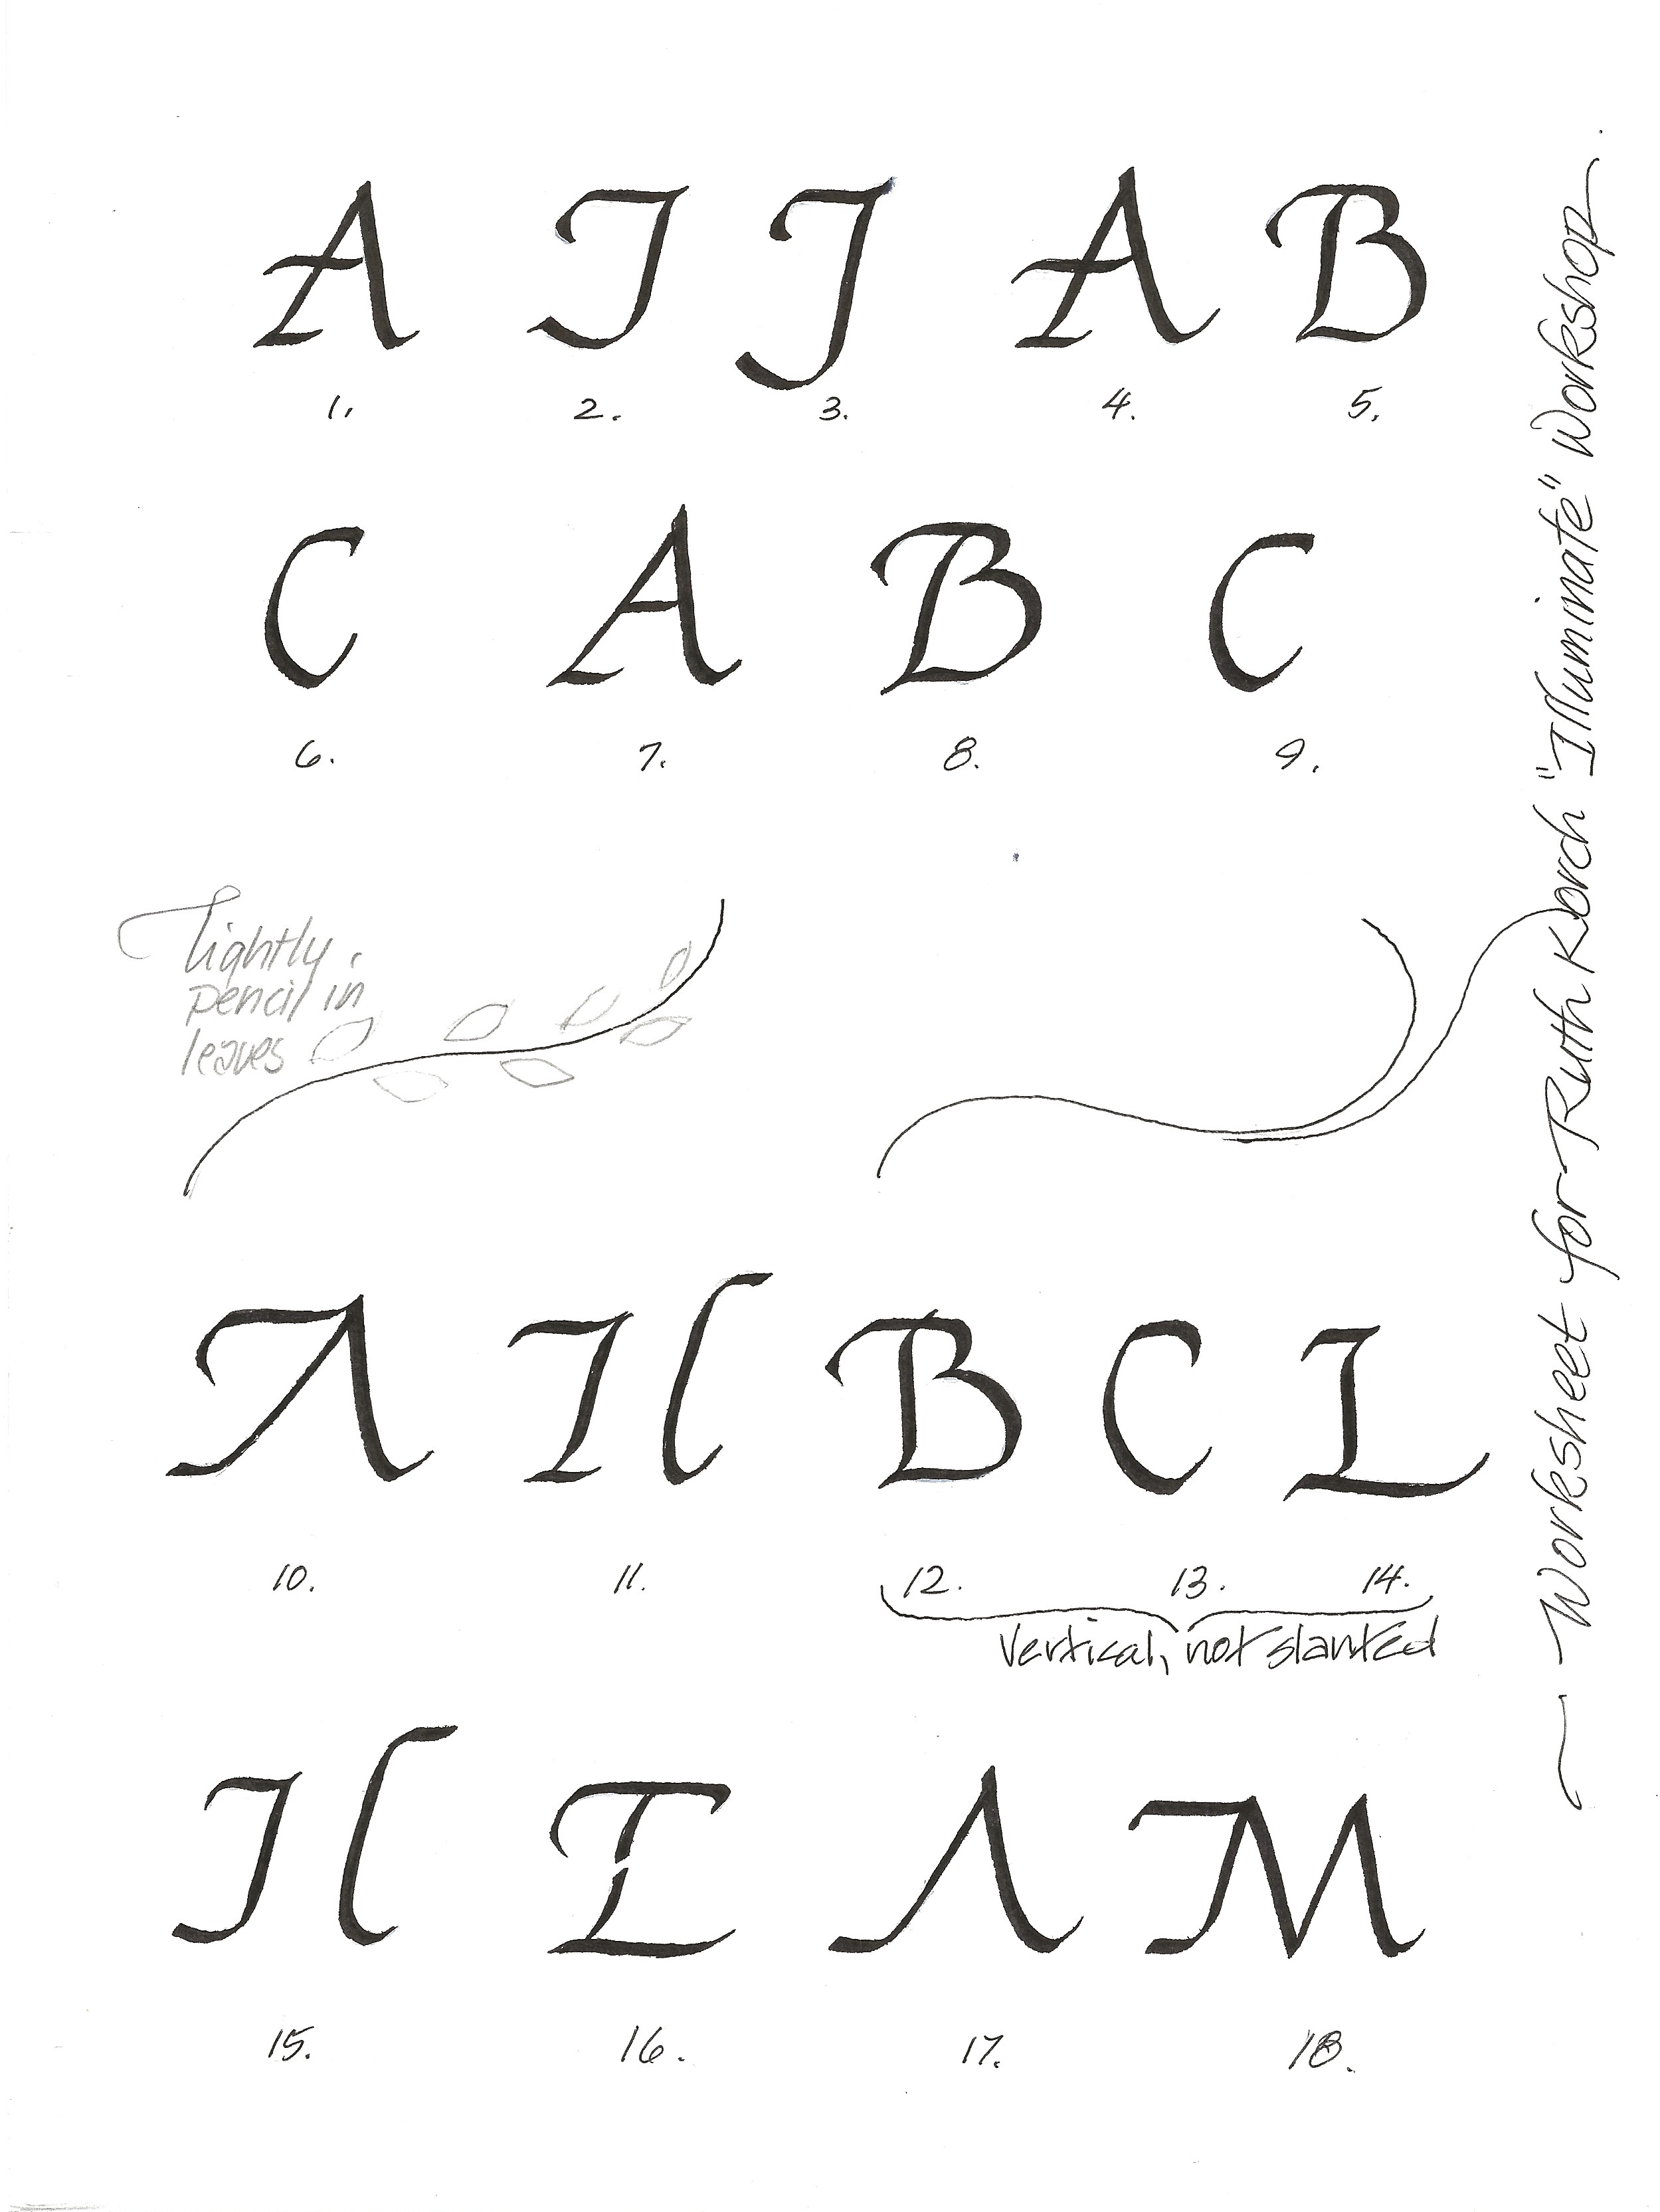 A J J A B
1. 2. 3. 4. 5.
C A B C
6. 7. 8. 9.
lightly
pencil in
leaves
Λ I B C L
10. 11. 12. 13. 14.
vertical, not slanted
J E Λ M
15. 16. 17. 18.
Worksheet for Ruth Korch "Illuminate" Workshop